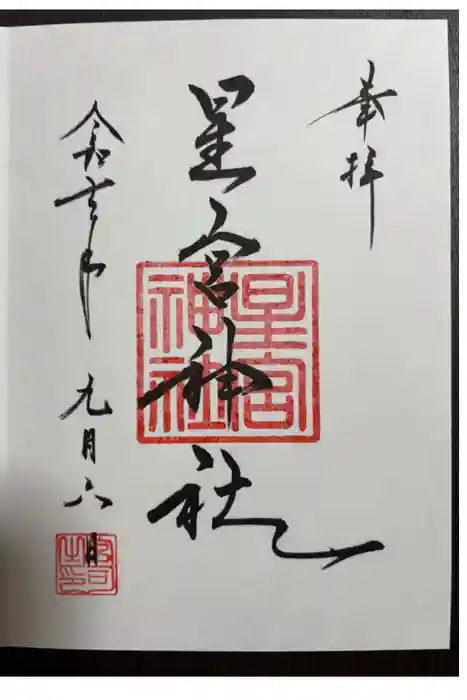 奉拝
星宮神社
星宮
神社
令和年 九月六日
宮司
之印